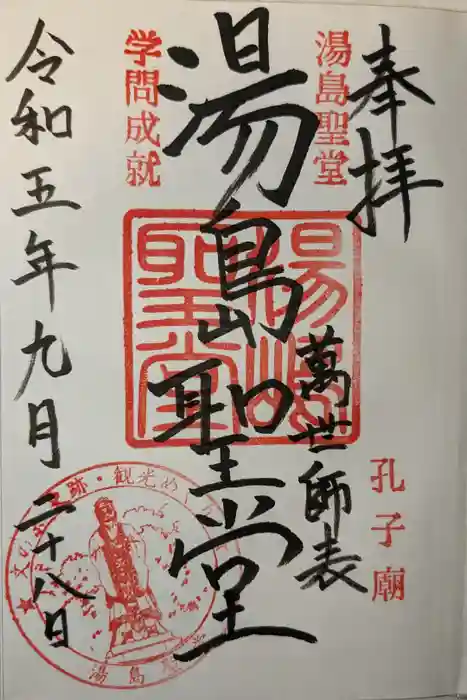 奉拝
湯島聖堂
孔子廟
萬世師表
湯島聖堂
湯島聖堂
学問成就
令和五年九月二十八日
跡・観光め
湯島